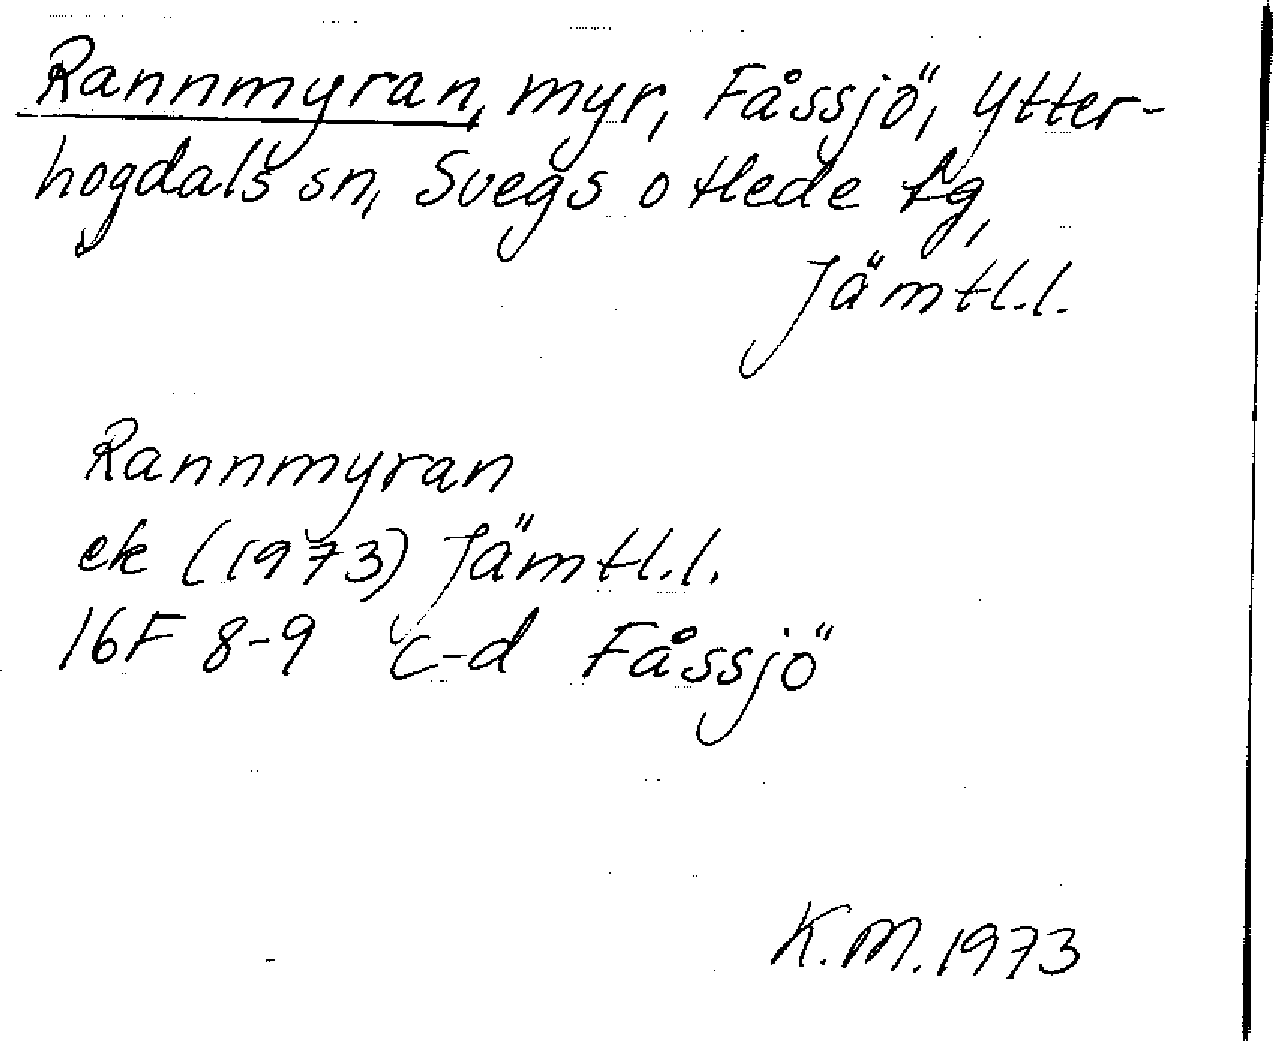 Rannmyran, myr, Fåssjö, Ytter-
hogdals sn, Svegs o Hede tg,
Jämtl.l.
Rannmyran
ek (1973) Jämtl.l.
16F 8-9 c-d Fåssjö
K.M. 1973